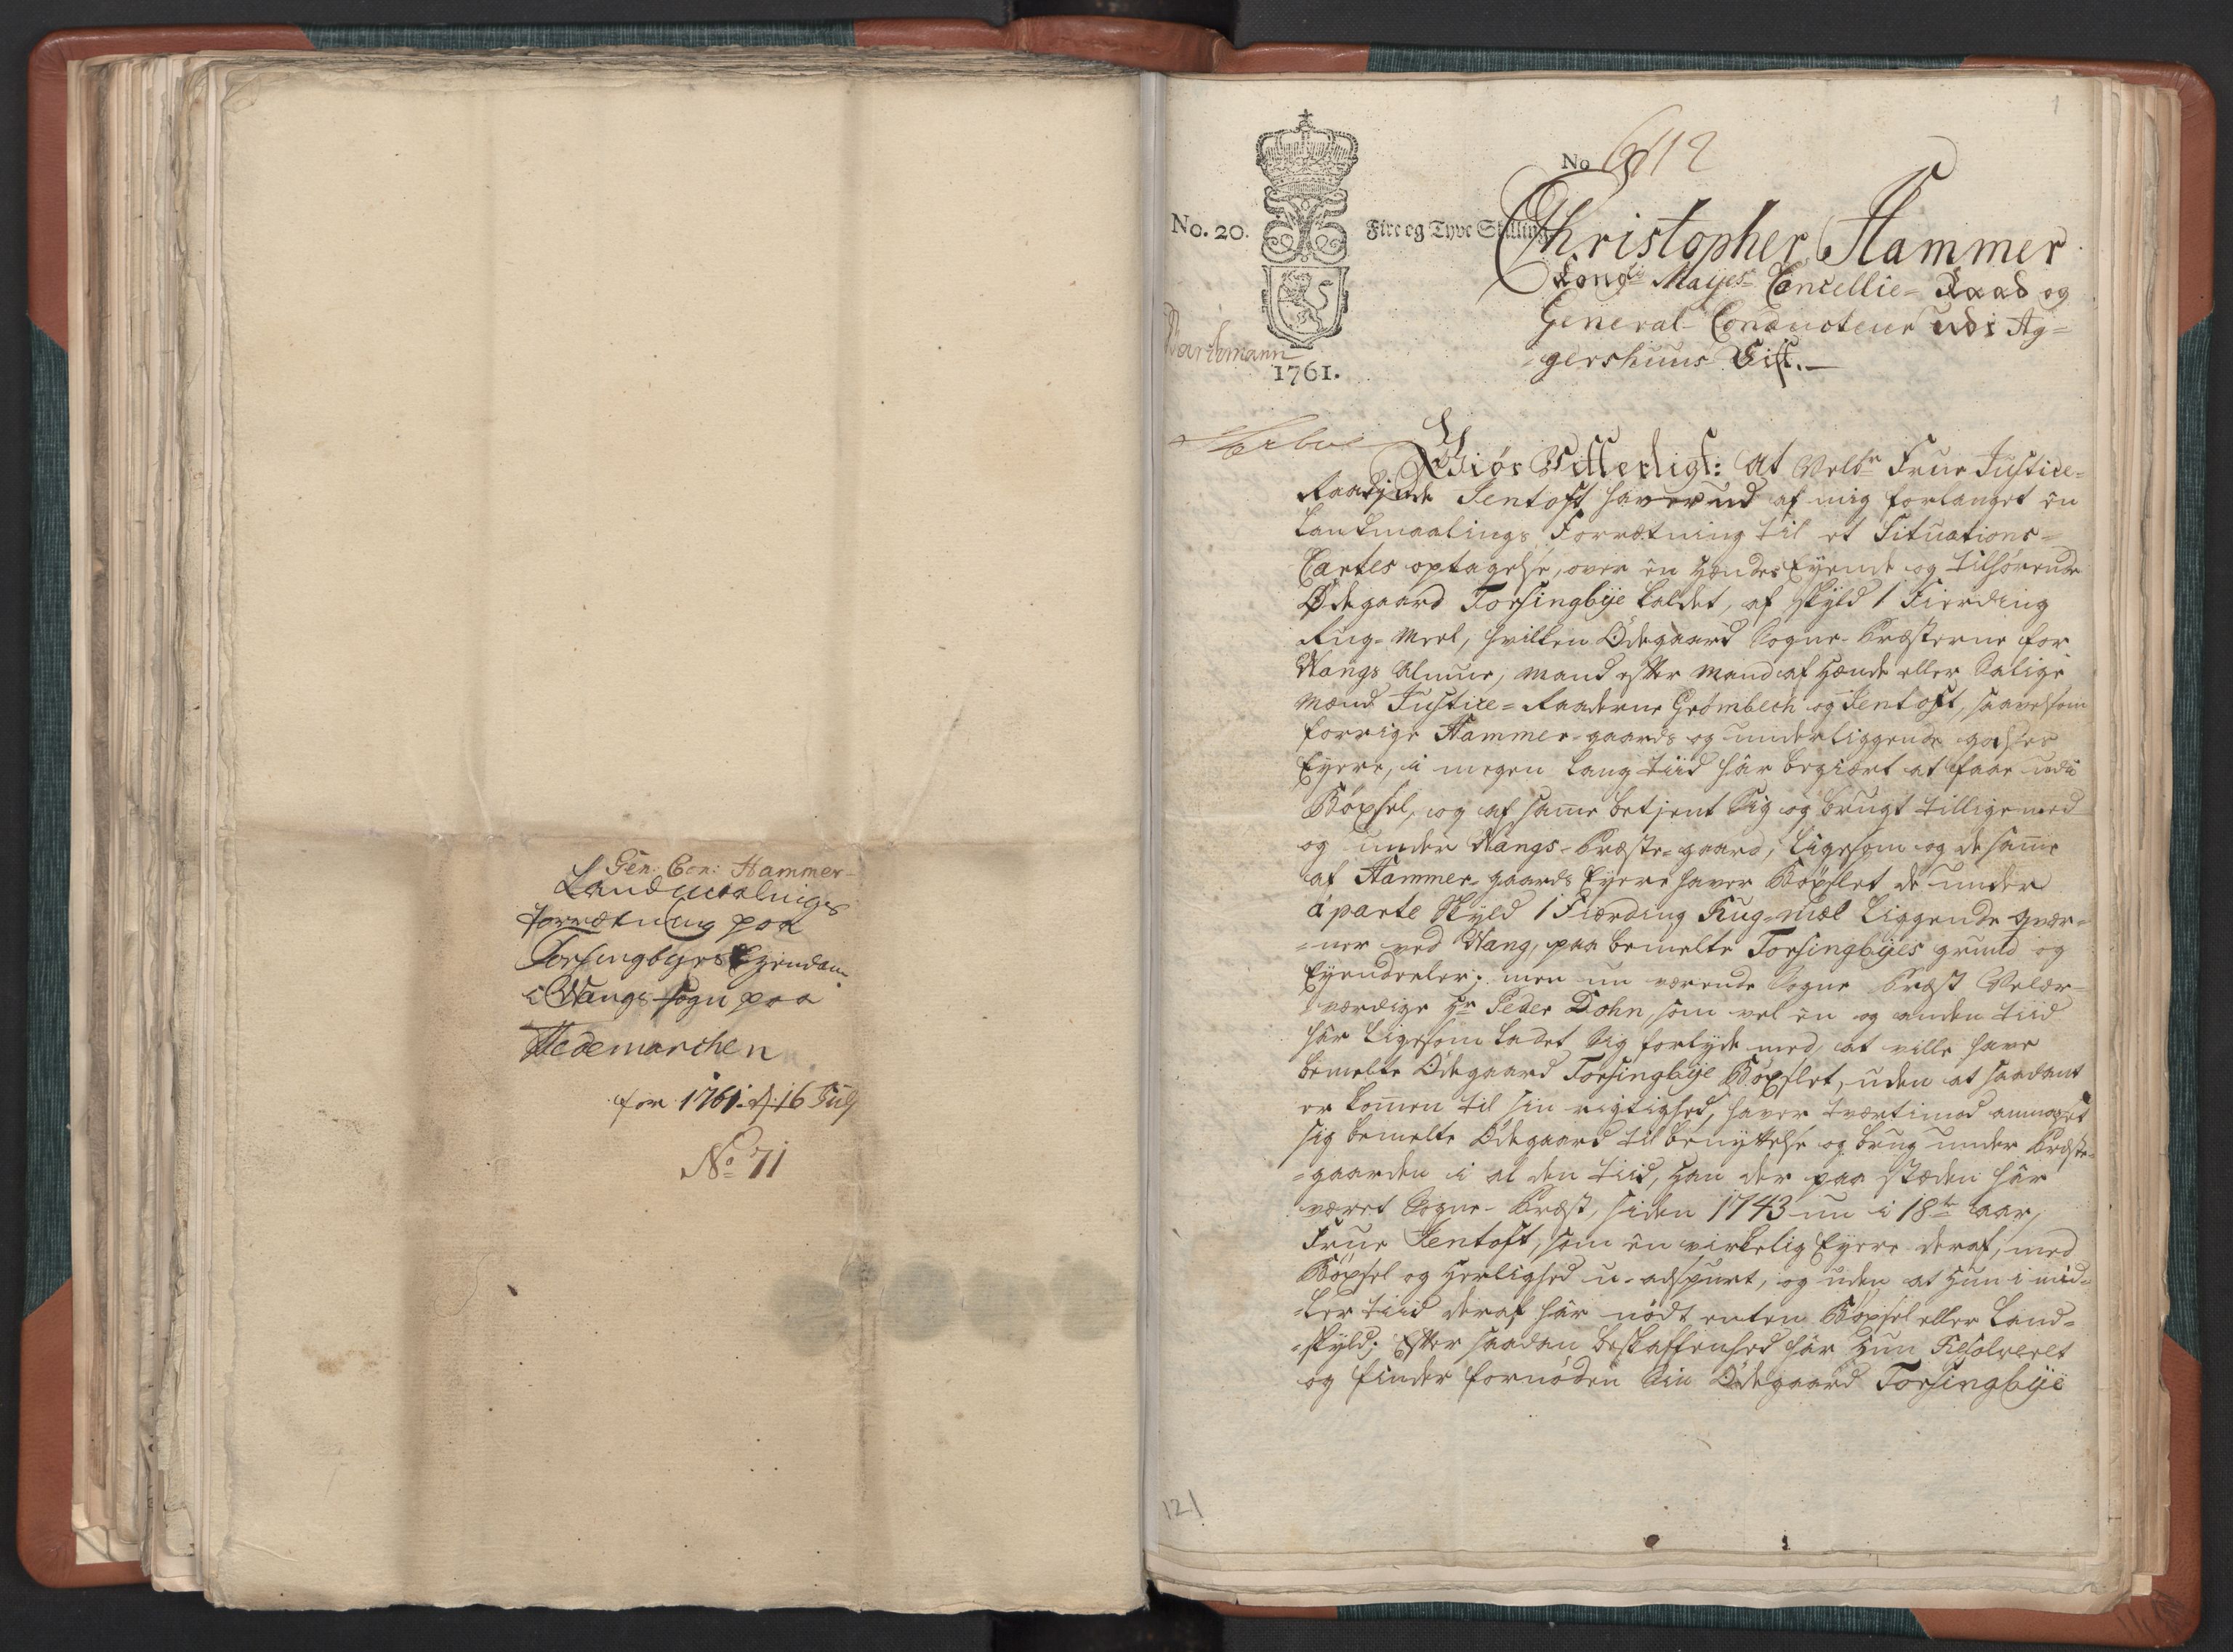 Gen: Con: Hammer
Landmaalnigs
forrætning paa
Torsingbyes Eyendom
i Wangs sogn paa
Hedemarchen
for 1761. d: 16 July
No 71
1
No 6112
No. 20.
Fire og Tyve Skilling
1761.
Christopher Hammer
Kongl: Mayes: Cancellie-Raad og
General-Conducteur udi Ag=
=gershuus Stift.
Giør Vitterligt: At Velbe Frue Justice-
Raadinde Jentoft haver ud af mig forlanget en
Landmaalings Forrætning til et Situations-
Cartes optagelse, over en hendes Eyende og tilhørende
Ødegaard Torsingbye kaldet, af skyld 1 Fierding
Rug-Meel, hvilken Ødegaard Sogne-Præsterne for
Wangs Almue, mand efter mand af hende eller Salige
mænd Justice-Raaderne Grømbech og Jentoft, saavelsom
forrige Hammer-gaards og underliggende godses
Eyere, i megen lang tiid har begiært at faae udi
Böxsel, og af same betjent sig og brugt tilligemed
og under Wangs-Præste-gaard, ligesom og de same
af Hammer-gaards Eyere haver Böxslet de under
á parte Skyld 1 Fierding Rug-mæl liggende qvær=
=ner ved Wang, paa bemelte Torsingbyes grund og
Eyendeeler; men nu værende Sogne Præst Velær=
værdige Hr Peder Dohn, som vel en og anden tiid
har ligesom ladet sig forlyde med, at ville have
bemelte Ødegaard Torsingbye Böxslet, uden at saadant
er komen til sin rigtighed, haver tvertimod anmaset
sig bemelte Ødegaard til benyttelse og brug under Præste=
=gaarden i al den tiid, han der paa stæden har
været Sogne-Præst, siden 1743 nu i 18te aar,
Frue Jentoft, som en virkelig Eyere deraf, med
Böxsel og Herlighed u-adspurt, og uden at hun i mid=
=ler tiid deraf har nödt enten Böxsel eller Land=
=skyld; Efter saadan beskaffenhed har hun Resolveret
og finder fornöden sin Ødegaard Torsingbye
121